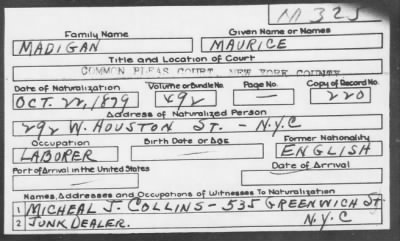 M 325
Family Name Given Name or Names
MADIGAN MAURICE
Title and Location of Court
COMMON PLEAS COURT, NEW YORK COUNTY
Date of Naturalization Volume or Bundle No. Page No. Copy of Record No.
OCT. 22, 1879 492 — 220
Address of Naturalized Person
292 W. HOUSTON ST. - N.Y.C
Occupation Birth Date or Age Former Nationality
LABORER — ENGLISH
Port of Arrival in the United States Date of Arrival
— —
Names, Addresses and Occupations of Witnesses To Naturalization
1 MICHEAL J. COLLINS - 535 GREENWICH ST.
2 JUNK DEALER. N.Y.C